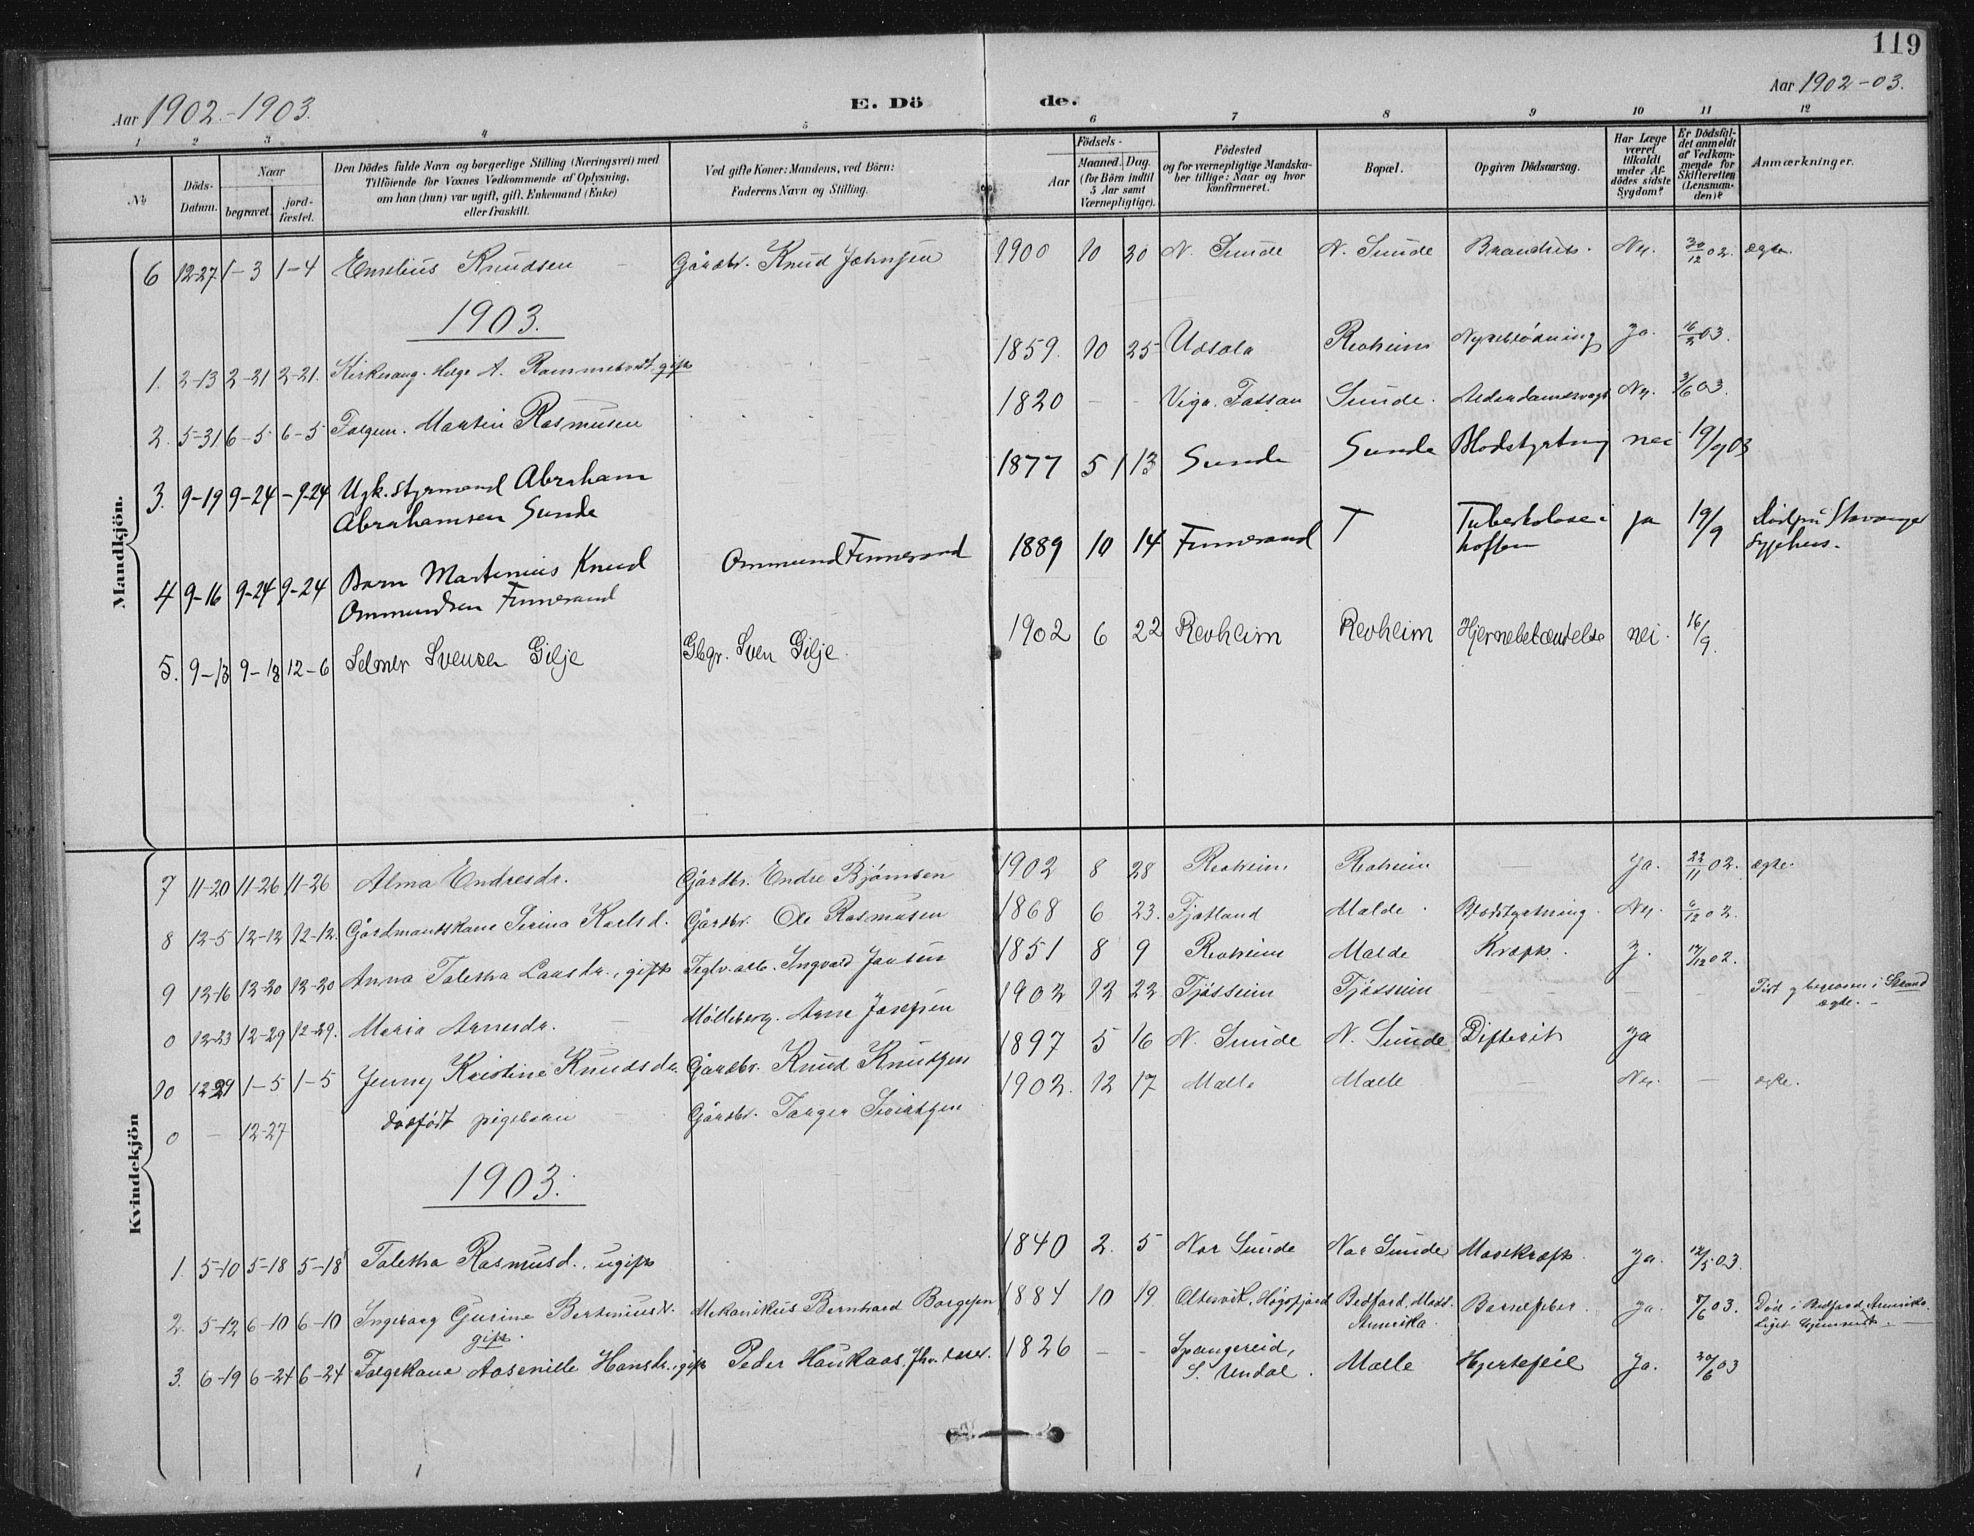 119
Aar 1902-1903.
E. Dö
de.
Aar 1902-03.
1 2 3 4 5 6 7 8 9 10 11 12
No
Döds-
Datum.
Naar
begravet.
jord-
fæstet.
Den Dödes fulde Navn og borgerlige Stilling (Næringsvei) med
Tilföiende for Voxnes Vedkommende af Oplysning,
om han (hun) var ugift, gift, Enkemand (Enke)
eller fraskilt.
Ved gifte Koner: Mandens, ved Börn:
Faderens Navn og Stilling.
Födsels-
Aar
Maaned. Dag.
(for Börn indtil
5 Aar samt
Værnepligtige).
Födested
og for værnepligtige Mandska-
ber tillige: Naar og hvor
konfirmeret.
Bopæl.
Opgiven Dödsaarsag.
Har Læge
været
tilkaldt
under Af-
dödes sidste
Sygdom?
Er Dödsfal-
det anmeldt
af Vedkom-
mende for
Skifteretten
(Lensman-
den)?
Anmærkninger.
Mandkjön.
6 12-27 1-3 1-4 Emelius Knudsen Gårdbr. Knud Johnsen 1900 10 20 N. Sunde N. Sunde Ne. 30/12 02. ægte.
1903.
1. 2-13 2-21 2-21. Kirkesang. Helge A. gift 1859. 10 25 Revheim Ja. 16/2 03.
2. 5-31 6-5 6-5 Martin Rasmusen 1820 - - Sunde. Ne. 3/6 03.
3. 9-19 9-24 -9-24 Ugk. Styrmand Abraham
Abrahamsen Sunde 1877 5 13 Sunde Sunde Blodstyrtning nei 19/9 03
4 9-16 9-24 9-24 Barn Martinius Knud
Ommundsen Finnesand Ommund Finnesand 1889 10 14 Finnesand T Tuberkolose i
hoften ja 19/9 Död på Stavanger
Sygehus.
5. 9-13 9-18 12-6 Selmer Svensen Gilje Gbgr. Sven Gilje. 1902 6 22 Revheim Revheim Hjernebetændelse nei. 16/9.
Kvindekjön
7 11-20 11-26 11-26 Alma Endresdr. Gårdbr. Endre Bjørnsen 1902 8 28 Revheim Revheim Ja. 22/11 02. ægte.
8 12-5 12-12 12-12. Gårdmandskone Serina Karlsd. Gårdbr. Ole Rasmusen 1868 6 23. Fjotland Malde Blodstyrtning. Ne. 02.
9 12-16 12-20 12-20 Anna Taletha Larsdr., gift Teglv.arb. Ingvard Jansen 1851 8 9 Revheim Malde Kræft. J. 17/12 02.
0 12-23 12-29 12-29. Maria Arnesdr. Mölleberg. Arne Josefsen 1902 12 22 Tjösseim Tjösseim - - - i Strand
ægte.
10 12-29 1-5 1-5 Jenny Kristine Knudsdr. Gårdbr. Knud Knudsen 1897 5 16 N. Sunde N. Sunde Difterit ja
0 - 12-27 dödfödt pigebarn Gårdbr. Torger 1902. 12 17 Malle Malle - Ne. - ægte.
1903.
1. 5-10 5-18 5-18 Taletha Rasmusd., ugift 1840 2. 5 Nor Sunde Nor Sunde Mavekræft. ja. 12/5 03.
2. 5-12 6-10 6-10 Ingeborg Gurine Bertiniusdr.
gift. Mekanikus Bernhard Borgesen 1884 10 19 Oltesvik, Høgsfjord Bedford, Mass.
Amerika. Barselfeber. ja. 7/6 03. Død i Bedford, Amerika.
Liget hjemsendt.
3. 6-19 6-24 6-24 Folgekone Aasenille Hansdr., gift Peder Haukaas, 1826 - - Spangereid,
S. Undal. Malle Hjertefeil Ja. 20/6 03